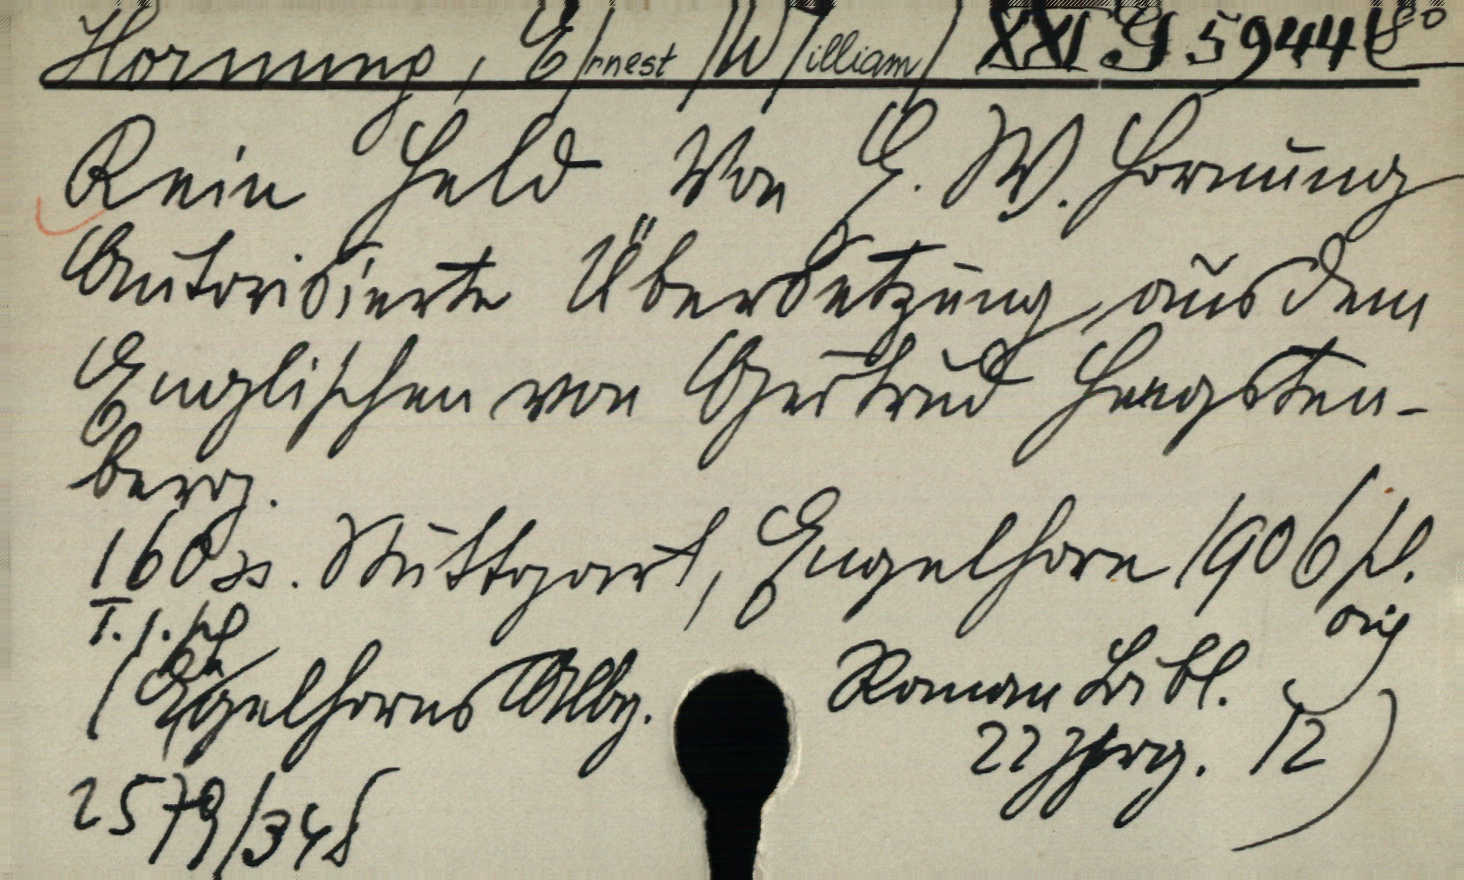 Hornung, E/rnest/ W/illiam/ XXI G 5944 8°
Kein Held Von E. W. Hornung
Autorisierte Übersetzung aus dem
Englischen von Gertrud Hengsten-
berg.
160 ss. Stuttgart, Engelhorn 1906 fl.
orig
T. 1. sl
(Engelhorns Allbg. Roman Bibl.
22 Jhrg. 12)
2579/348